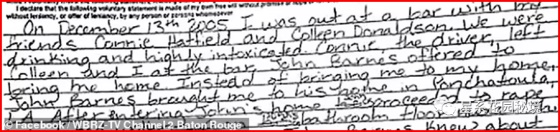 I declare that the following voluntary statement is made of my own free will without promise of hope
without leniency, or offer of leniency, by any person or persons whomsoever
On December 13th 2005 I was out at a bar with my
friends Connie Hatfield and Colleen Donaldson. We were
drinking and highly intoxicated. Connie the driver, left
Colleen and I at the bar. John Barnes offered to
bring me home. Instead of bringing me to my home,
John Barnes brought me to his home in Ponchatoula,
LA. After entering John's home proceeded to rape
bathroom floor
Knew about
Facebook / WBRZ-TV Channel 2 Baton Rouge